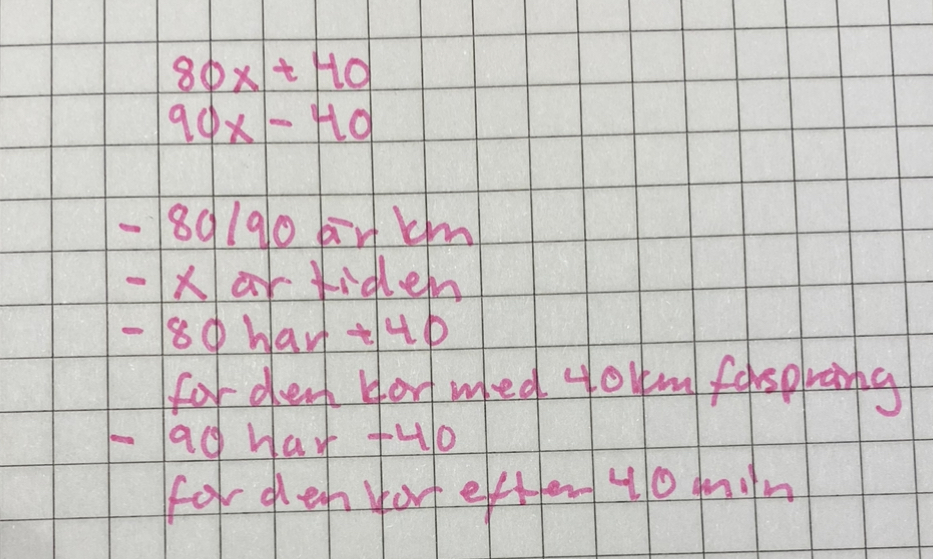 80x + 40
90x - 40
- 80/90 är km
- x är tiden
- 80 har +40
för den kör med 40km försprång
- 90 har -40
för den kör efter 40 min